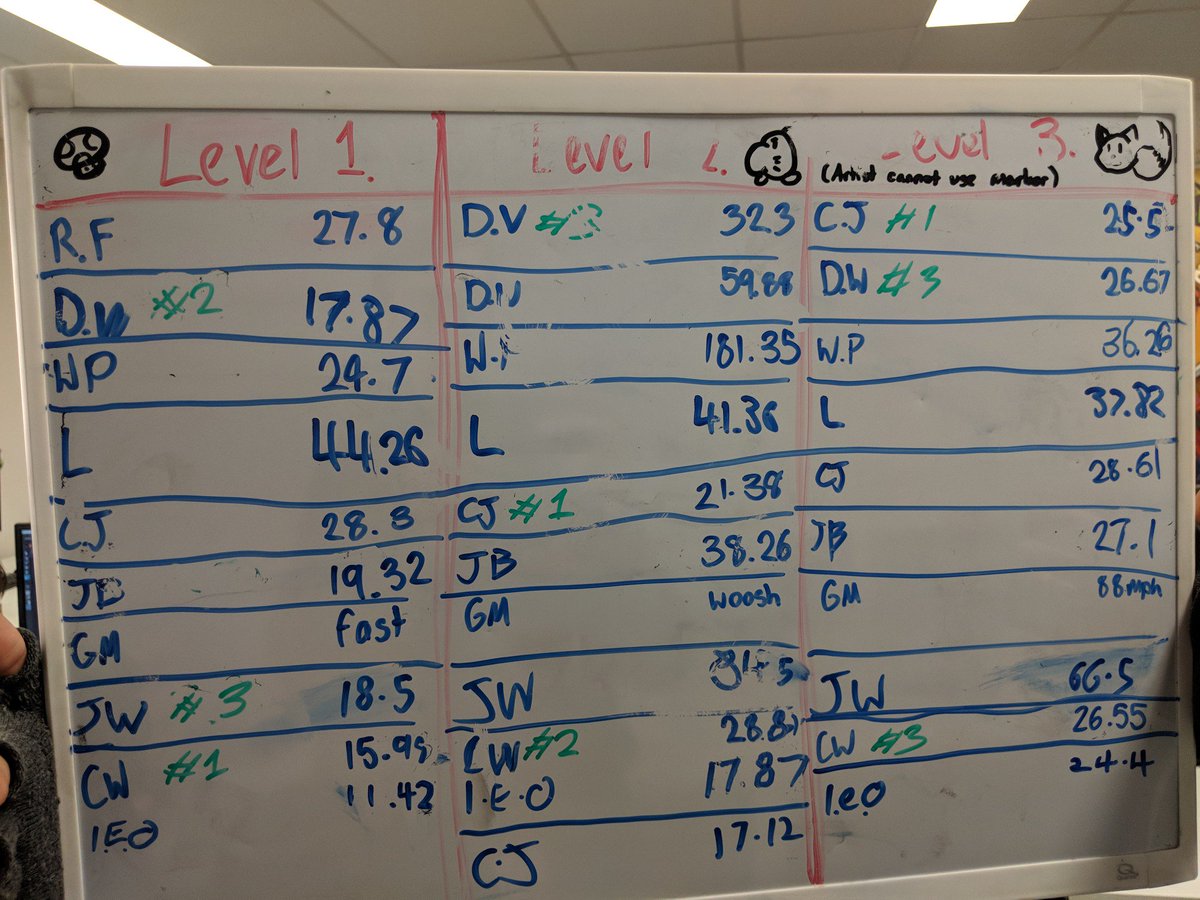 Level 1.
R.F 27.8
D.W #2 17.87
WP 24.7
L 44.26
C.J 28.3
JB 19.32
GM fast
JW #3 18.5
CW #1 15.95
I.E.O 11.42
Level 2.
D.V #3 32.3
D.W 59.88
W.P 181.35
L 41.36
CJ #1 21.38
JB 38.26
GM woosh
JW
CW #2 28.87
I.E.O 17.87
C.J 17.12
Level 3.
(Artist cannot use marker)
C.J #1 25.5
D.W #3 26.67
W.P 36.26
L 37.82
CJ 28.61
JB 27.1
GM 88mph
JW 66.5
CW #3 26.55
I.e.O 24.4